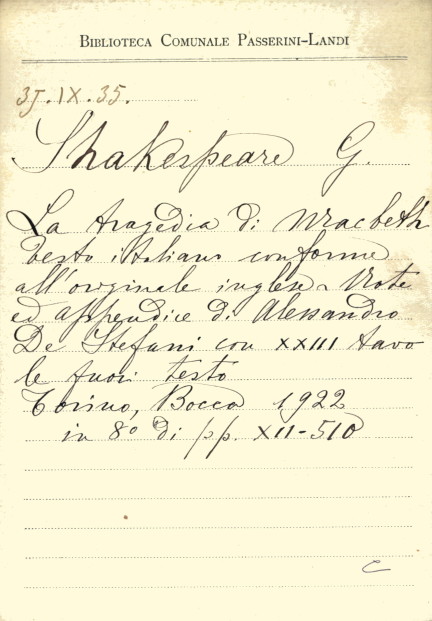 BIBLIOTECA COMUNALE PASSERINI-LANDI
3J.IX.35.
Shakespeare G.
La tragedia di Macbeth
testo italiano conforme
all'originale inglese. Note
ed appendice di Alessandro
De Stefani con XXIII tavo
le fuori testo
Torino, Bocca 1922
in 8º di pp. XII-510
c